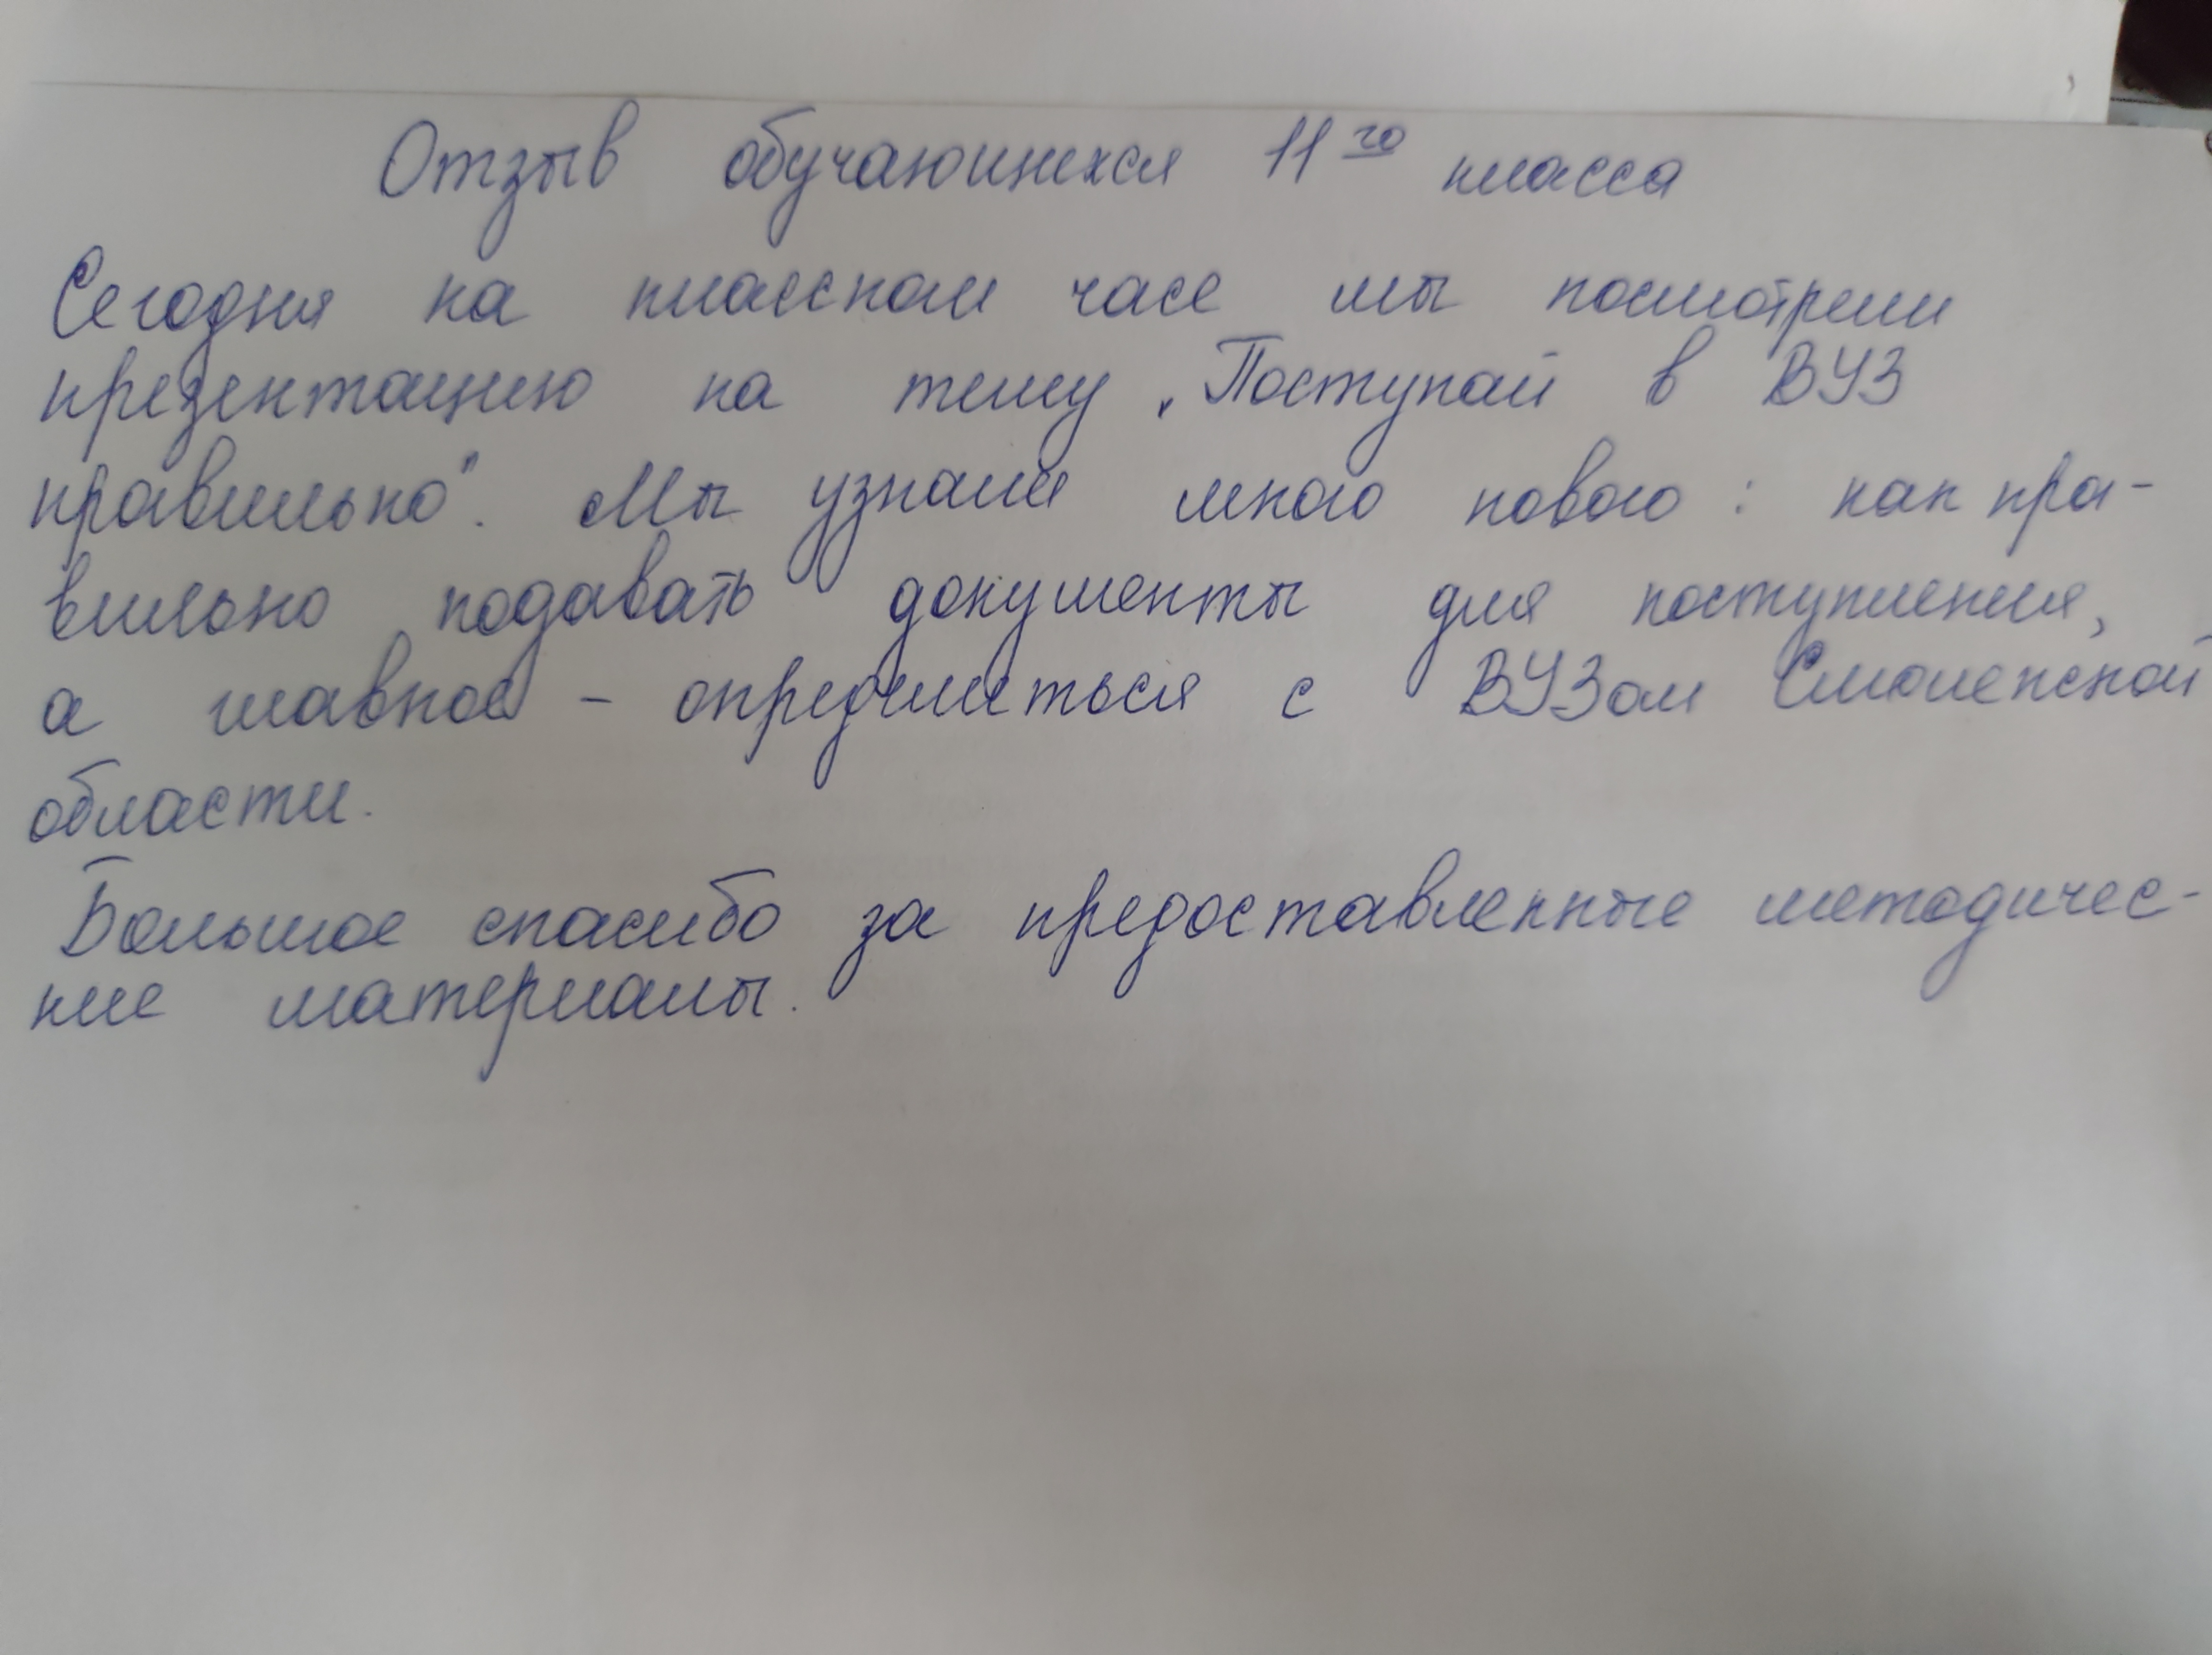 Отзыв обучающихся 11го класса
Сегодня на классном часе мы посмотрели
презентацию на тему „Поступай в ВУЗ
правильно". Мы узнали много нового: как пра-
вильно подавать документы для поступления,
а главное - определиться с ВУЗом Смоленской
области.
Большое спасибо за предоставленные методичес-
кие материалы.